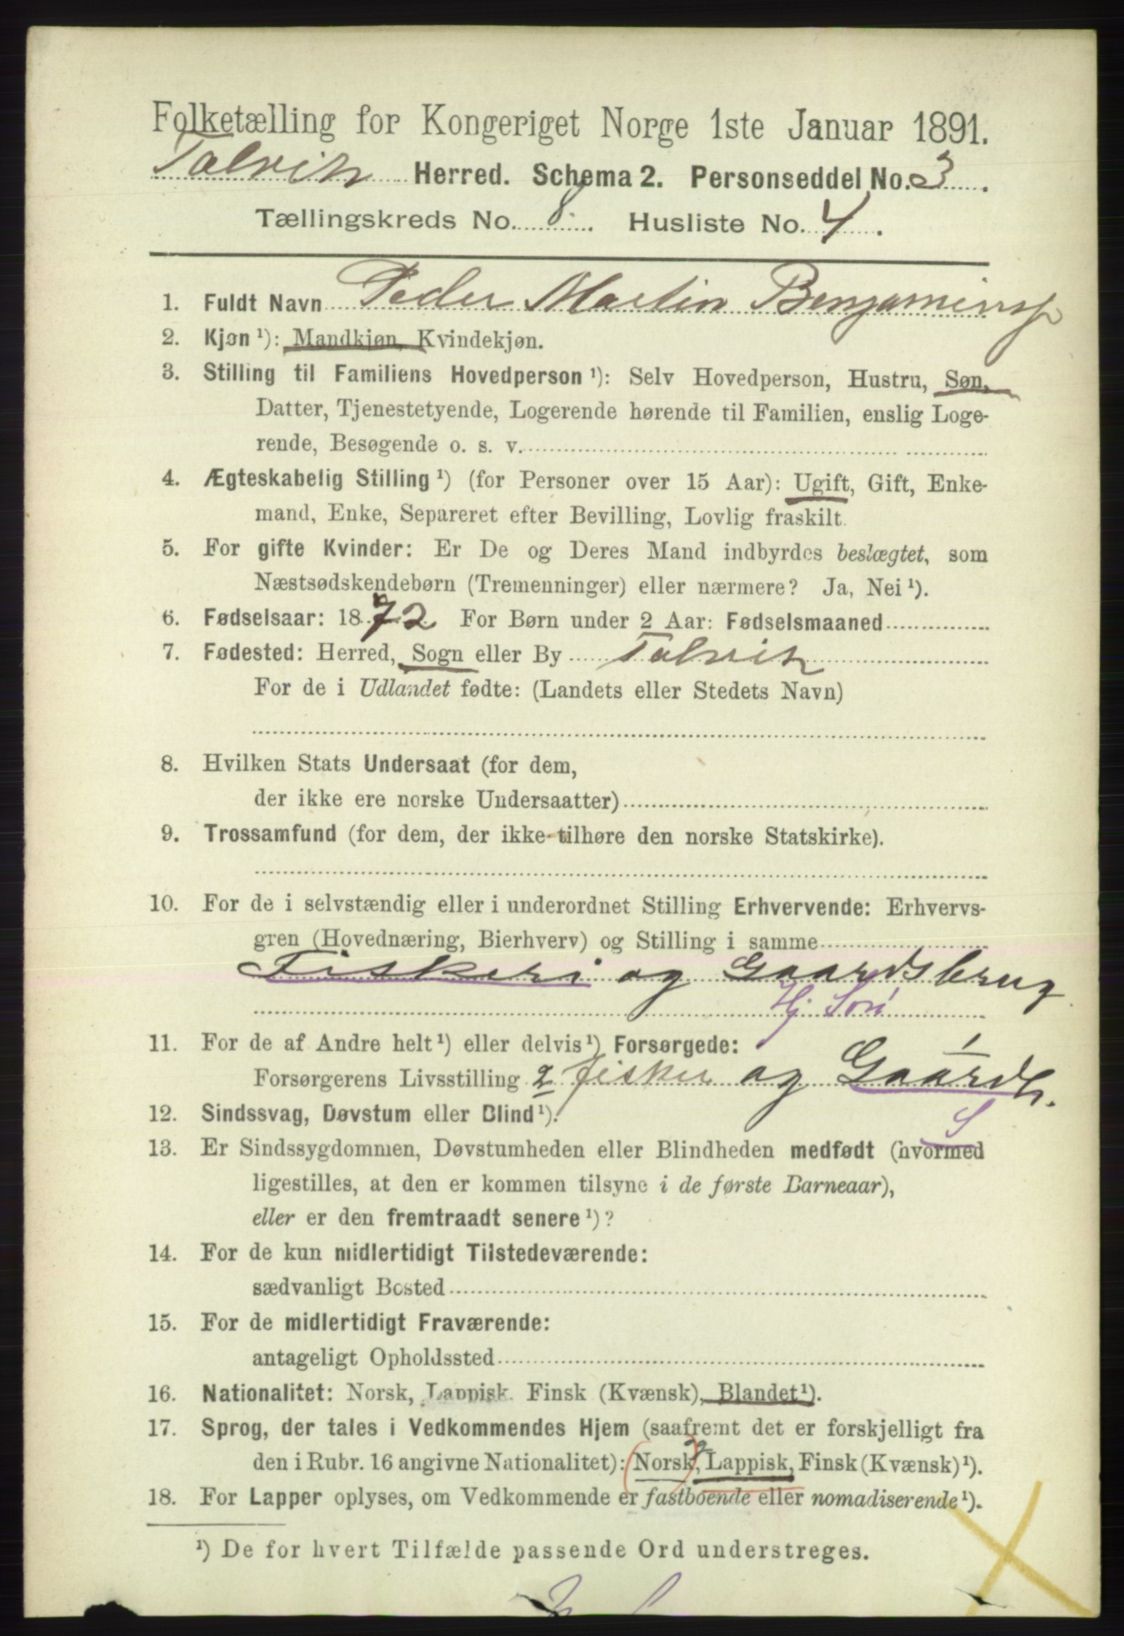 Folketælling for Kongeriget Norge 1ste Januar 1891.
Talvik Herred. Schema 2. Personseddel No. 3.
Tællingskreds No. 8. Husliste No. 4.
1. Fuldt Navn Peder Martin Benjamins
2. Kjøn ¹): Mandkjøn, Kvindekjøn.
3. Stilling til Familiens Hovedperson ¹): Selv Hovedperson, Hustru, Søn,
Datter, Tjenestetyende, Logerende hørende til Familien, enslig Loge-
rende, Besøgende o. s. v.
4. Ægteskabelig Stilling ¹) (for Personer over 15 Aar): Ugift, Gift, Enke-
mand, Enke, Separeret efter Bevilling, Lovlig fraskilt
5. For gifte Kvinder: Er De og Deres Mand indbyrdes beslægtet, som
Næstsødskendebørn (Tremenninger) eller nærmere? Ja, Nei ¹).
6. Fødselsaar: 1872 For Børn under 2 Aar: Fødselsmaaned
7. Fødested: Herred, Sogn eller By Talvik
For de i Udlandet fødte: (Landets eller Stedets Navn)
8. Hvilken Stats Undersaat (for dem,
der ikke ere norske Undersaatter)
9. Trossamfund (for dem, der ikke tilhøre den norske Statskirke).
10. For de i selvstændig eller i underordnet Stilling Erhvervende: Erhvervs-
gren (Hovednæring, Bierhverv) og Stilling i samme
Fiskeri og Gaardsbrug
Hj
11. For de af Andre helt ¹) eller delvis ¹) Forsørgede:
Forsørgerens Livsstilling fisker og Gaardb.
S
12. Sindssvag, Døvstum eller Blind ¹).
13. Er Sindssygdommen, Døvstumheden eller Blindheden medfødt (hvormed
ligestilles, at den er kommen tilsyne i de første Barneaar),
eller er den fremtraadt senere ¹)?
14. For de kun midlertidigt Tilstedeværende:
sædvanligt Bosted
15. For de midlertidigt Fraværende:
antageligt Opholdssted
16. Nationalitet: Norsk, Lappisk, Finsk (Kvænsk), Blandet ¹).
17. Sprog, der tales i Vedkommendes Hjem (saafremt det er forskjelligt fra
den i Rubr. 16 angivne Nationalitet): Norsk, Lappisk, Finsk (Kvænsk) ¹).
18. For Lapper oplyses, om Vedkommende er fastboende eller nomadiserende ¹).
¹) De for hvert Tilfælde passende Ord understreges.